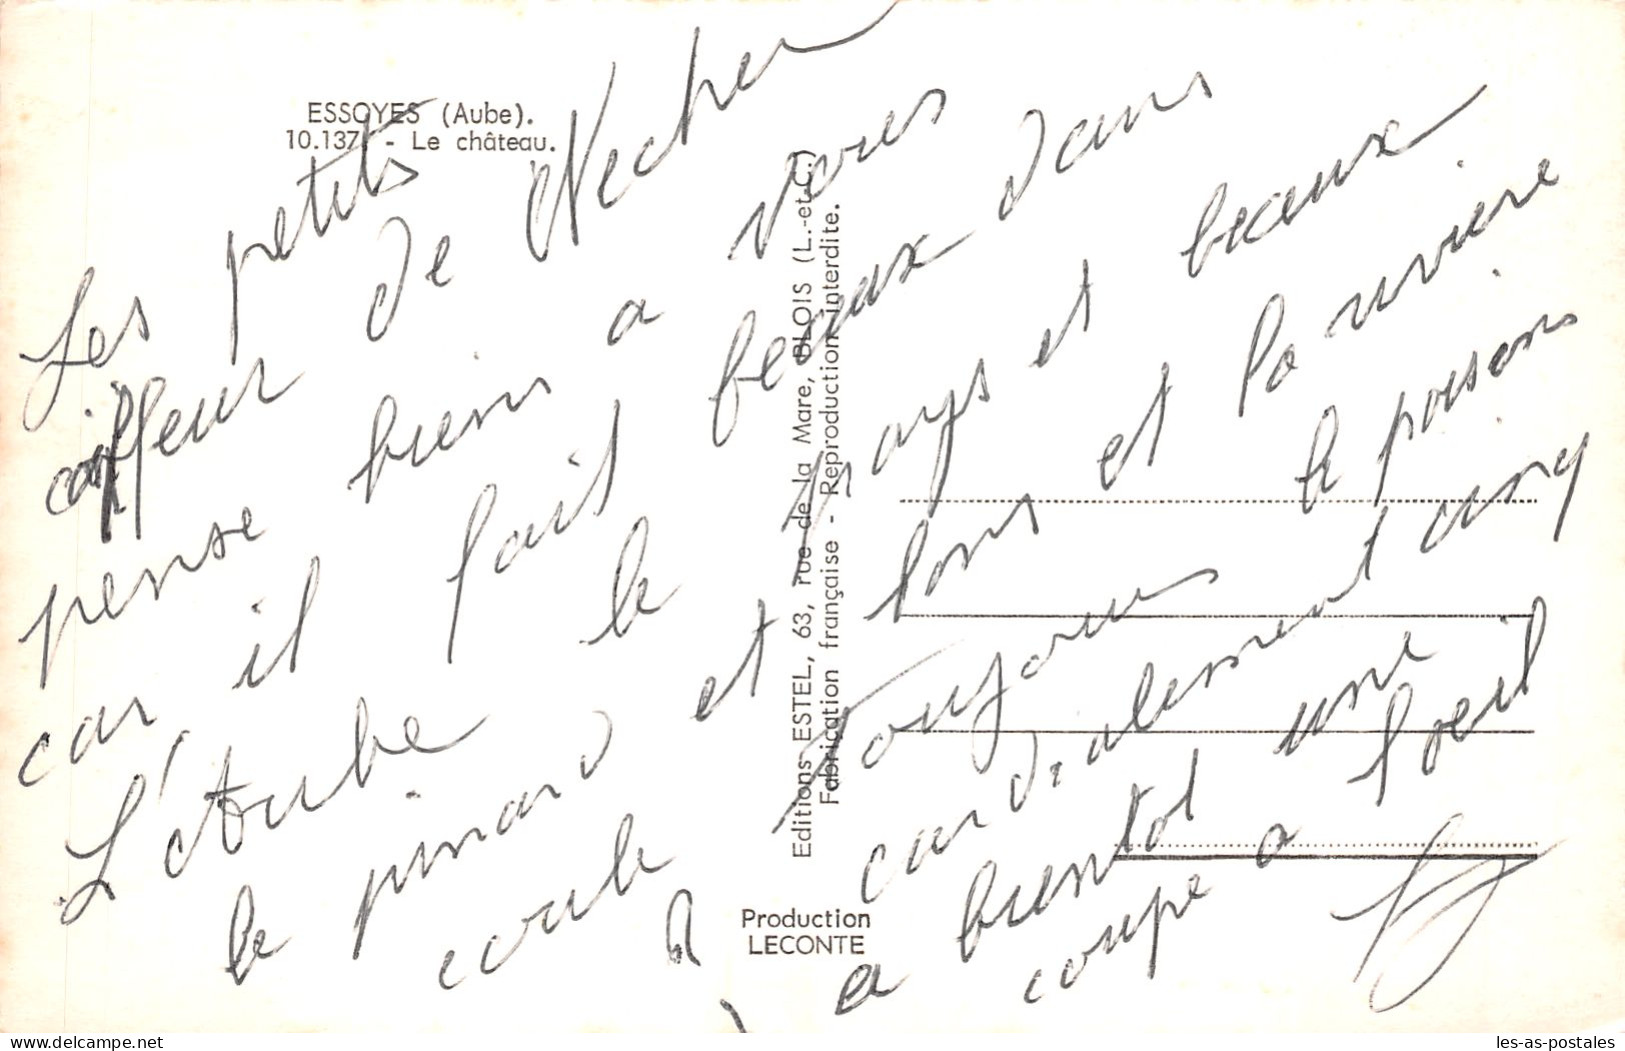 ESSOYES (Aube).
10.137 - Le château.
Les petits
coiffeur de Necker
pense bien a vous
car il fait beaux dans
L'Aube le pays et beaux
le pinard et bons et la riviere
coule toujours le poisons
cordialement cinq
a bientot une
coupe a l'oeil
Editions ESTEL, 63, rue de la Mare, BLOIS (L.-et-C.)
Fabrication française - Reproduction interdite.
Production
LECONTE
delcampe.net
les-as-postales